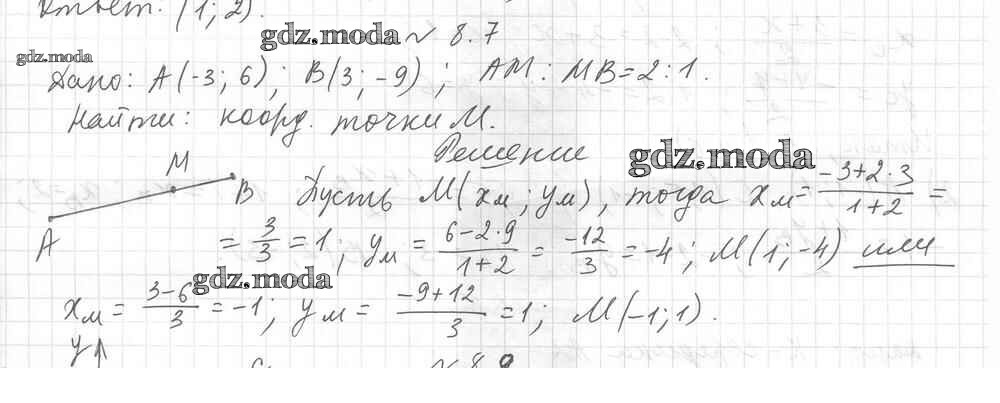 Ответ: (1; 2).
gdz.moda № 8.7
gdz.moda
Дано: A(-3; 6); B(3; -9); AM : MB = 2 : 1.
Найти: коорд. точки M.
Решение gdz.moda
M
B
A
Пусть M(xм; yм), тогда xм = (-3+2·3)/(1+2) =
= 3/3 = 1; yм = (6-2·9)/(1+2) = -12/3 = -4; M(1; -4) или
gdz.moda
xм = (3-6)/3 = -1; yм = (-9+12)/3 = 1; M(-1; 1).
y